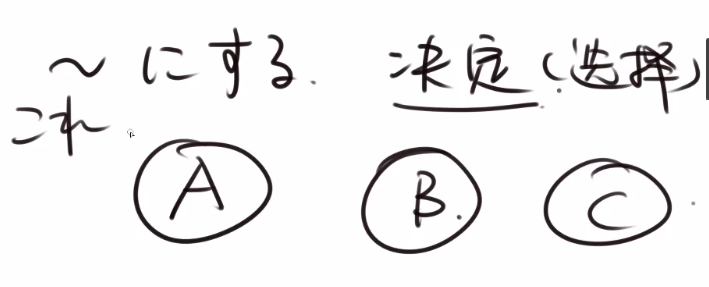 ～にする. 决定(选择)
これ
A B. C